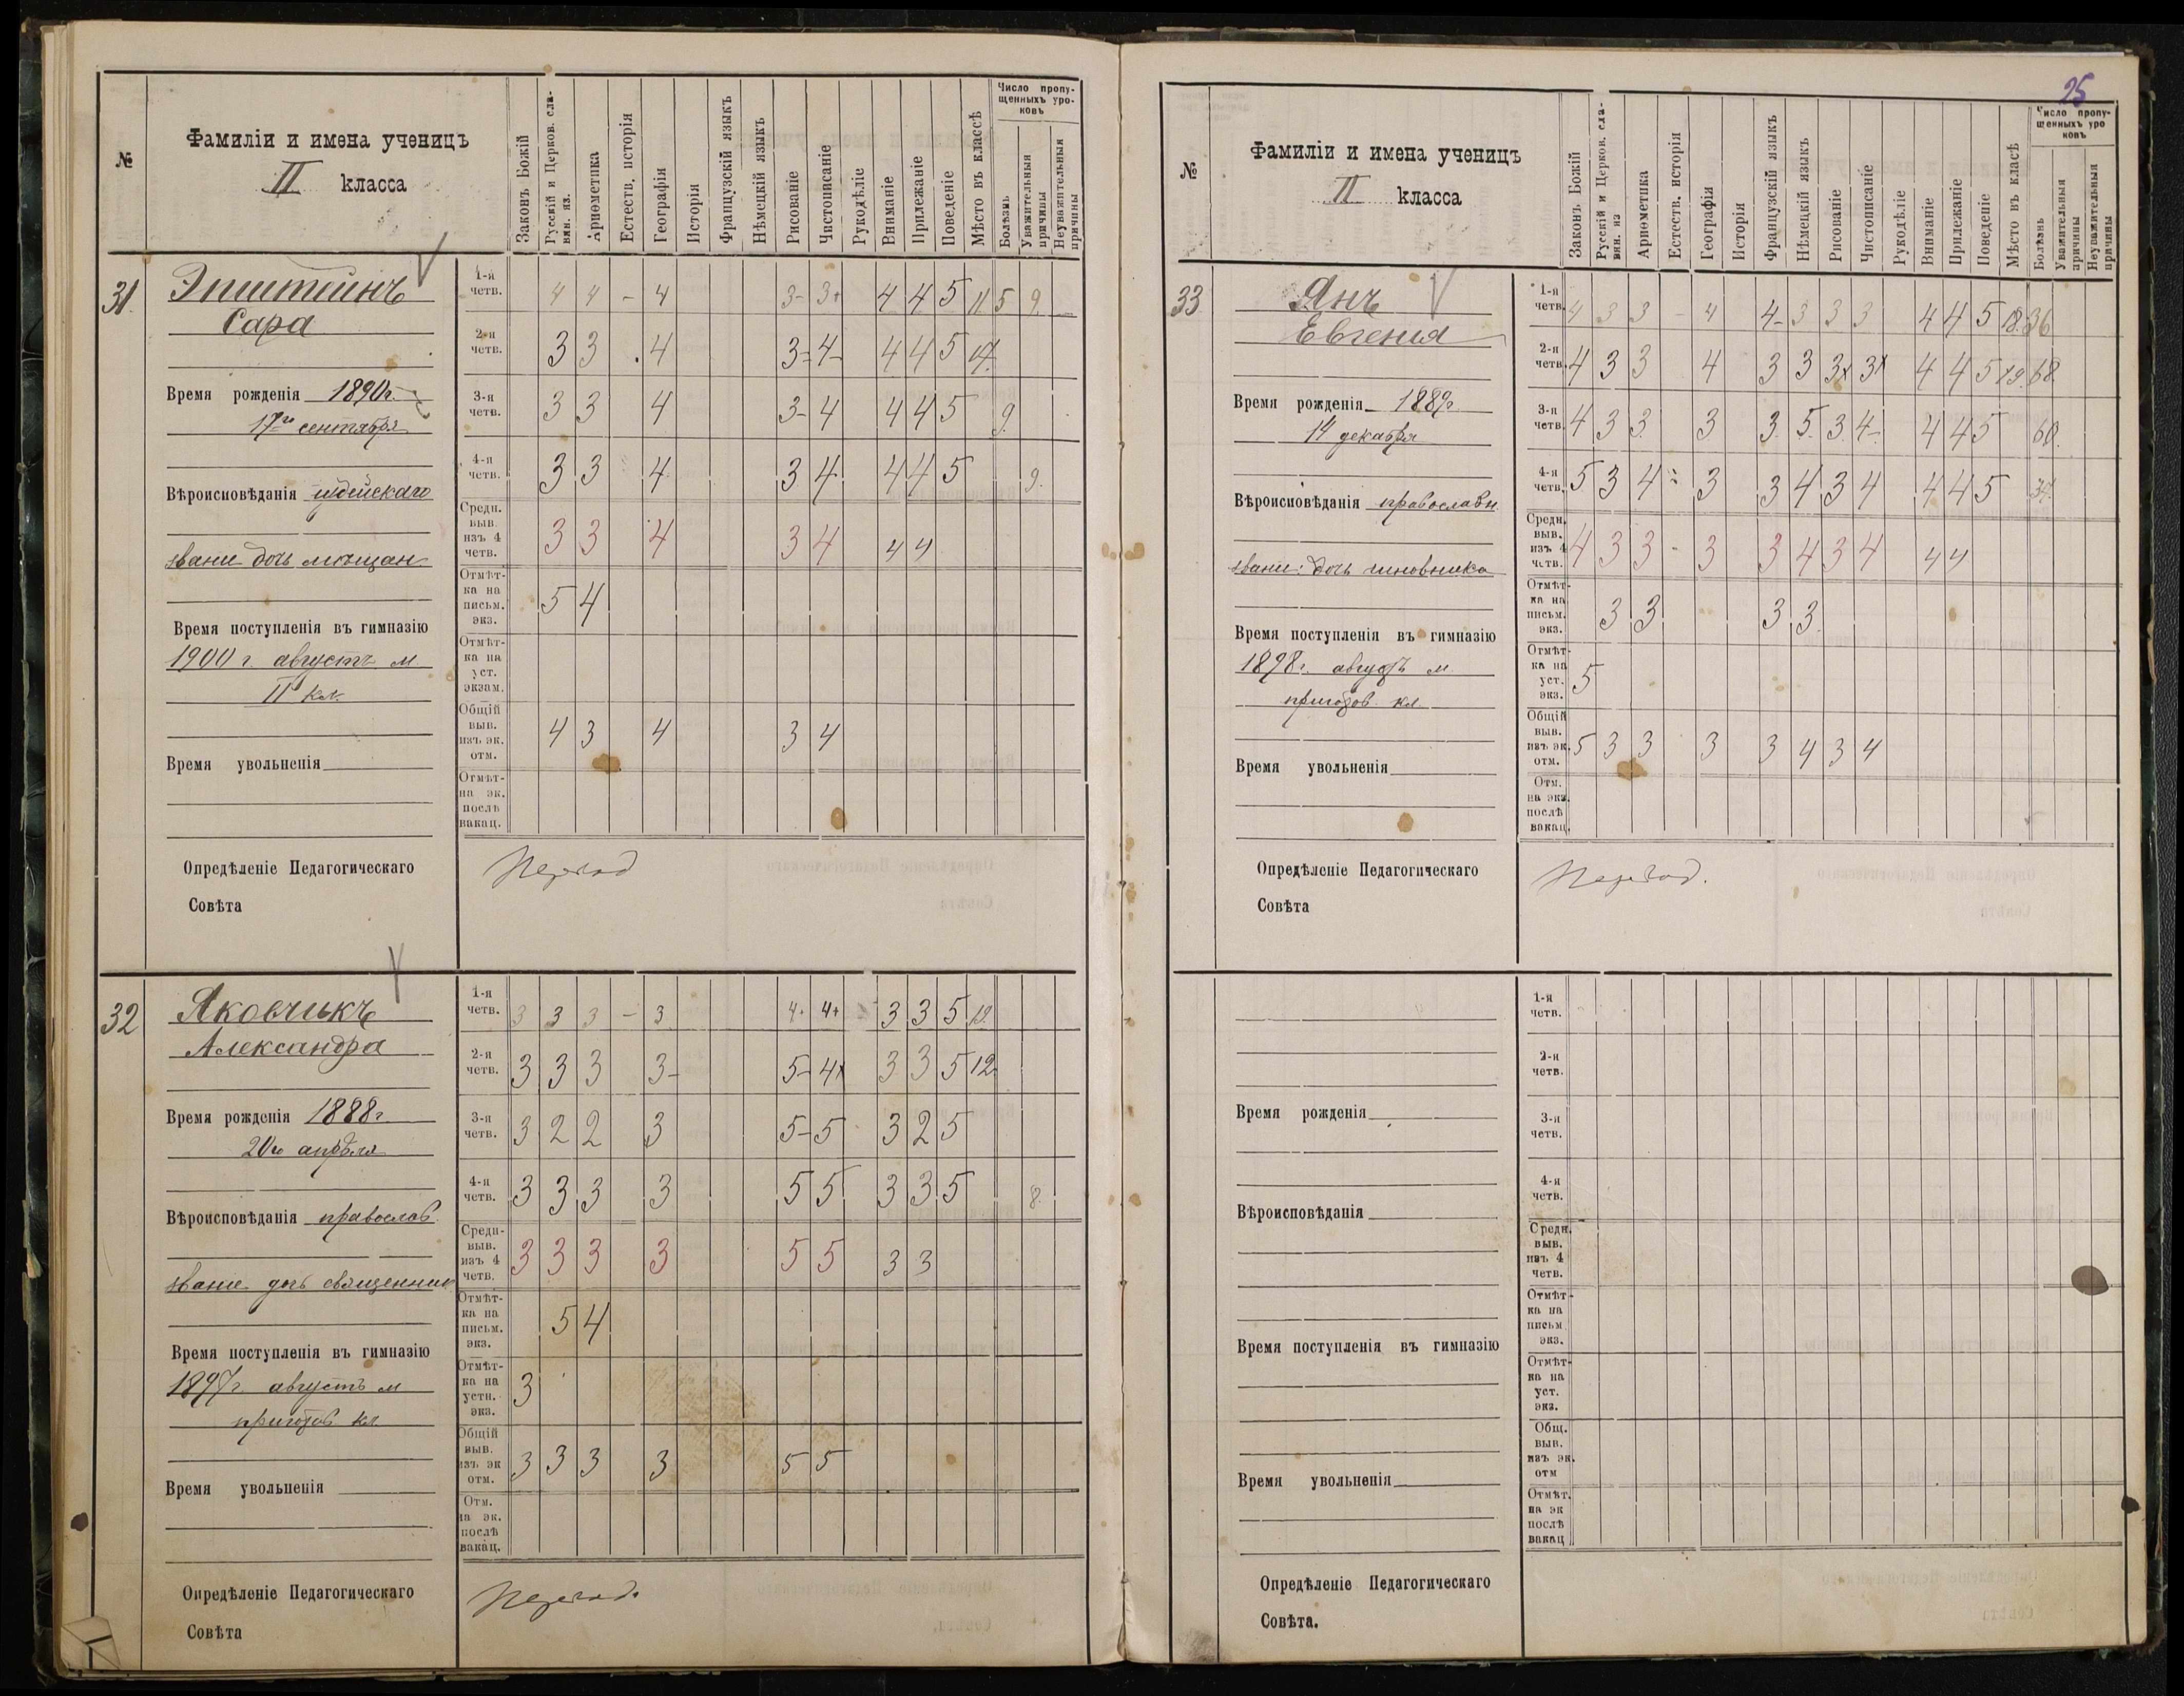 №
Фамиліи и имена ученицъ
II класса
Законъ Божій
Русскій и Церков. сла-
вян. яз.
Ариѳметика
Естеств. исторія
Географія
Исторія
Французскій языкъ
Нѣмецкій языкъ
Рисованіе
Чистописаніе
Рукодѣліе
Вниманіе
Прилежаніе
Поведеніе
Мѣсто въ классѣ
Число пропу-
щенныхъ уро-
ковъ
Болѣзнь
Уважительныя
причины
Неуважительныя
причины
31.
Эпштейнъ
Сара
Время рожденія 1890 г.
17го сентября
Вѣроисповѣданія іудейскаго
званіе дочь мѣщан
Время поступленія въ гимназію
1900 г. августъ м
II кл.
Время увольненія
1-я четв. 4 4 – 4 3- 3+ 4 4 5 11 5 9.
2-я четв. 3 3 4 3- 4- 4 4 5 17.
3-я четв. 3 3 4 3- 4 4 4 5 9.
4-я четв. 3 3 4 3 4 4 4 5 9.
Средн. выв. изъ 4 четв. 3 3 4 3 4 4 4
Отмѣт-ка на письм. экз. 5 4
Отмѣт-ка на уст. экзам.
Общій выв. изъ эк. отм. 4 3 4 3 4
Отмѣт-на эк. послѣ вакац.
Опредѣленіе Педагогическаго
Совѣта
Переход
32
Яковчикъ
Александра
Время рожденія 1888 г.
20го апрѣля
Вѣроисповѣданія православ.
званіе дочь священник
Время поступленія въ гимназію
1897 г. августъ м
приготов. кл
Время увольненія
1-я четв. 3 3 3 – 3 4· 4+ 3 3 5 19.
2-я четв. 3 3 3 3- 5- 4+ 3 3 5 12
3-я четв. 3 2 2 3 5- 5 3 2 5
4-я четв. 3 3 3 3 5 5 3 3 5 8.
Средн- выв. изъ 4 четв. 3 3 3 3 5 5 3 3
Отмѣт-ка на письм. экз. 5 4
Отмѣт-ка на устн. экз. 3
Общій выв. изъ эк отм. 3 3 3 3 5 5
Отм. на эк. послѣ вакац.
Опредѣленіе Педагогическаго
Совѣта
Переход.
25
№
Фамиліи и имена ученицъ
II класса
Законъ Божій
Русскій и Церков. сла-
вян. яз
Ариѳметика
Естеств. исторія
Географія
Исторія
Французскій языкъ
Нѣмецкій языкъ
Рисованіе
Чистописаніе
Рукодѣліе
Вниманіе
Прилежаніе
Поведеніе
Мѣсто въ класѣ
Число пропу-
щенныхъ уро
ковъ
Болѣзнь
Уважительныя
причины
Неуважительныя
причины
33
Янъ
Евгенія
Время рожденія 1889 г.
14 декабря
Вѣроисповѣданія православн.
званіе: дочь чиновника
Время поступленія въ гимназію
1898 г. августъ м.
приготов. кл
Время увольненія
1-я четв. 4 3 3 – 4 4- 3 3 3 4 4 5 18. 36
2-я четв. 4 3 3 4 3 3 3+ 3+ 4 4 5 19. 68.
3-я четв. 4 3 3 3 3. 5. 3. 4- 4 4 5 60.
4-я четв. 5 3 4 3 3 4 3 4 4 4 5 34.
Средн. выв. изъ 4 четв. 4 3 3 - 3 3 4 3 4 4 4
Отмѣт-ка на письм. экз. 3 3 3 3
Отмѣт-ка на уст. экз. 5
Общій выв. изъ эк. отм. 5 3 3 3 3 4 3 4
Отм. на экз. послѣ вакац.
Опредѣленіе Педагогическаго
Совѣта
Переход.
Время рожденія
Вѣроисповѣданія
Время поступленія въ гимназію
Время увольненія
1-я четв.
2-я четв.
3-я четв.
4-я четв.
Средн. выв. изъ 4 четв.
Отмѣт-ка на письм. экз.
Отмѣт-ка на уст. экз.
Общ. выв. изъ эк. отм
Отмѣт. на эк послѣ вакац
Опредѣленіе Педагогическаго
Совѣта.